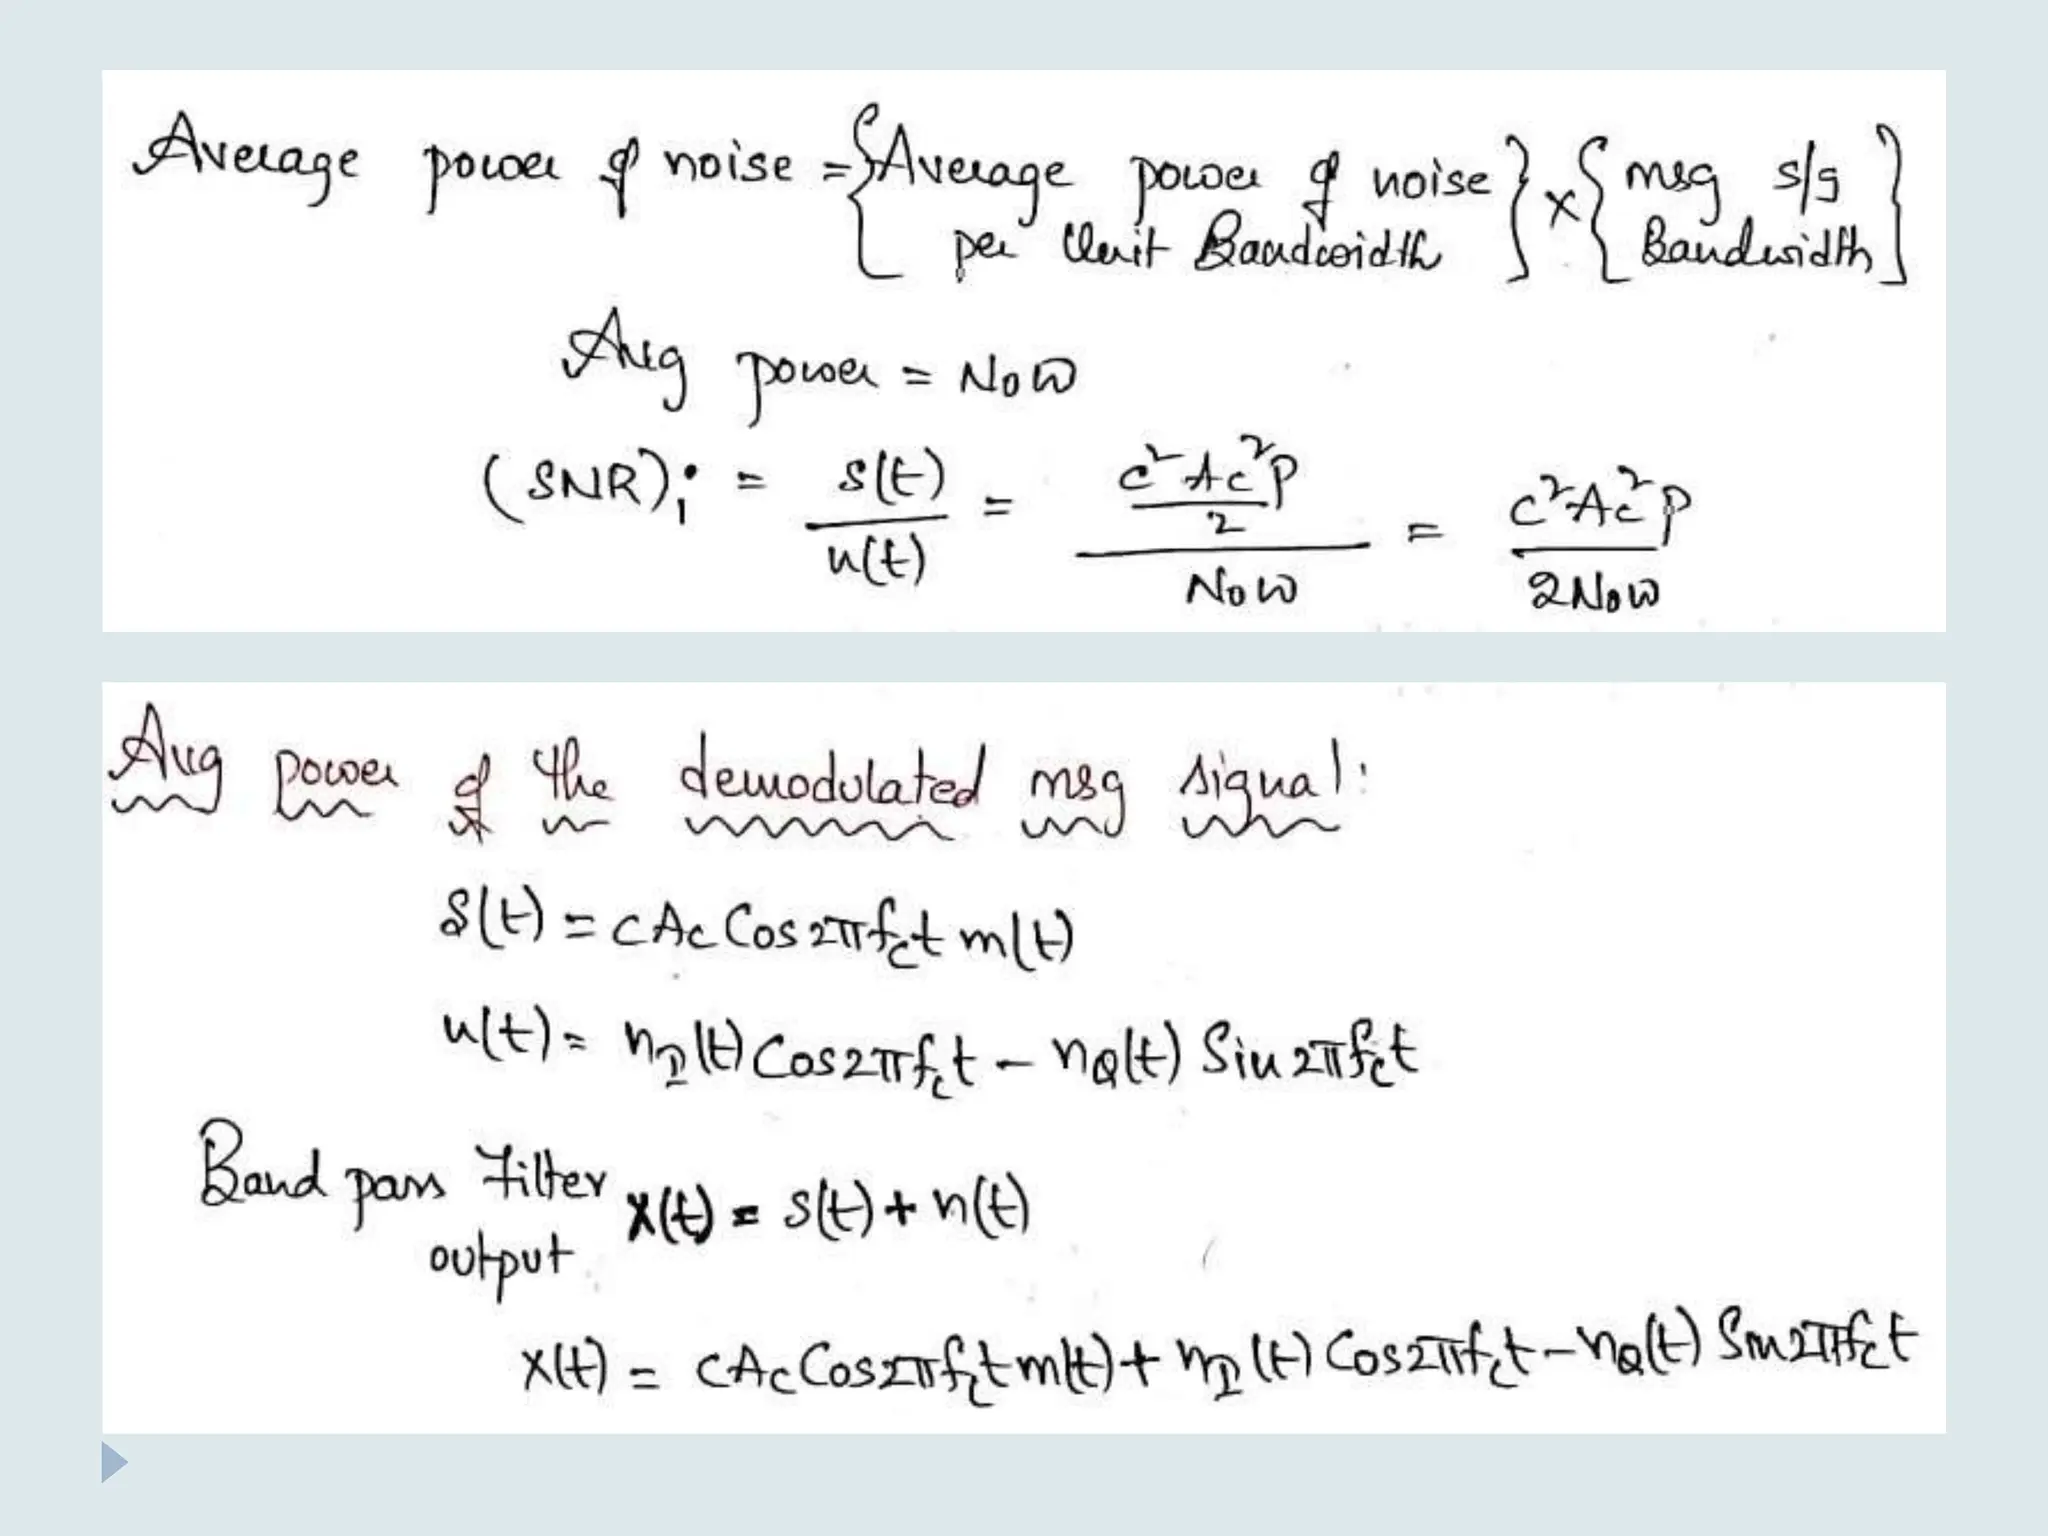 Average power of noise = { Average power of noise per Unit Bandwidth } x { msg s/g Bandwidth }
Avg power = N₀W
(SNR)ᵢ = s(t)/n(t) = (c²Ac²P/2)/(N₀W) = c²Ac²P/(2N₀W)
Avg power of the demodulated msg signal:
s(t) = cAc Cos2πfct m(t)
n(t) = nI(t) Cos2πfct - nQ(t) Sin2πfct
Band pass Filter output x(t) = s(t) + n(t)
x(t) = cAc Cos2πfct m(t) + nI(t) Cos2πfct - nQ(t) Sin2πfct